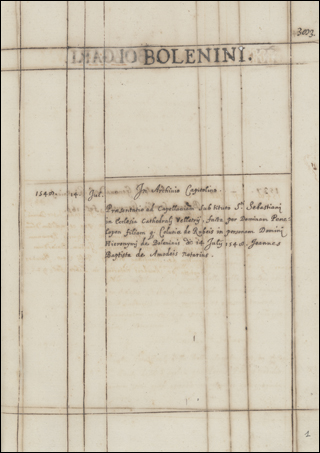 3603.
BOLENINI.
1540. 14 Jul. In Archivio Capitolino.
Præsentatio ad Capellaniam sub titulo S. Sebastiani
in Ecclesia Cathedrali facta per Dominam Pene-
lopem filiam q. de Rubeis in personam Domini
Hieronymi de Boleninis die 14 Julij 1540. Joannes
Baptista de Amadeis Notarius.
1